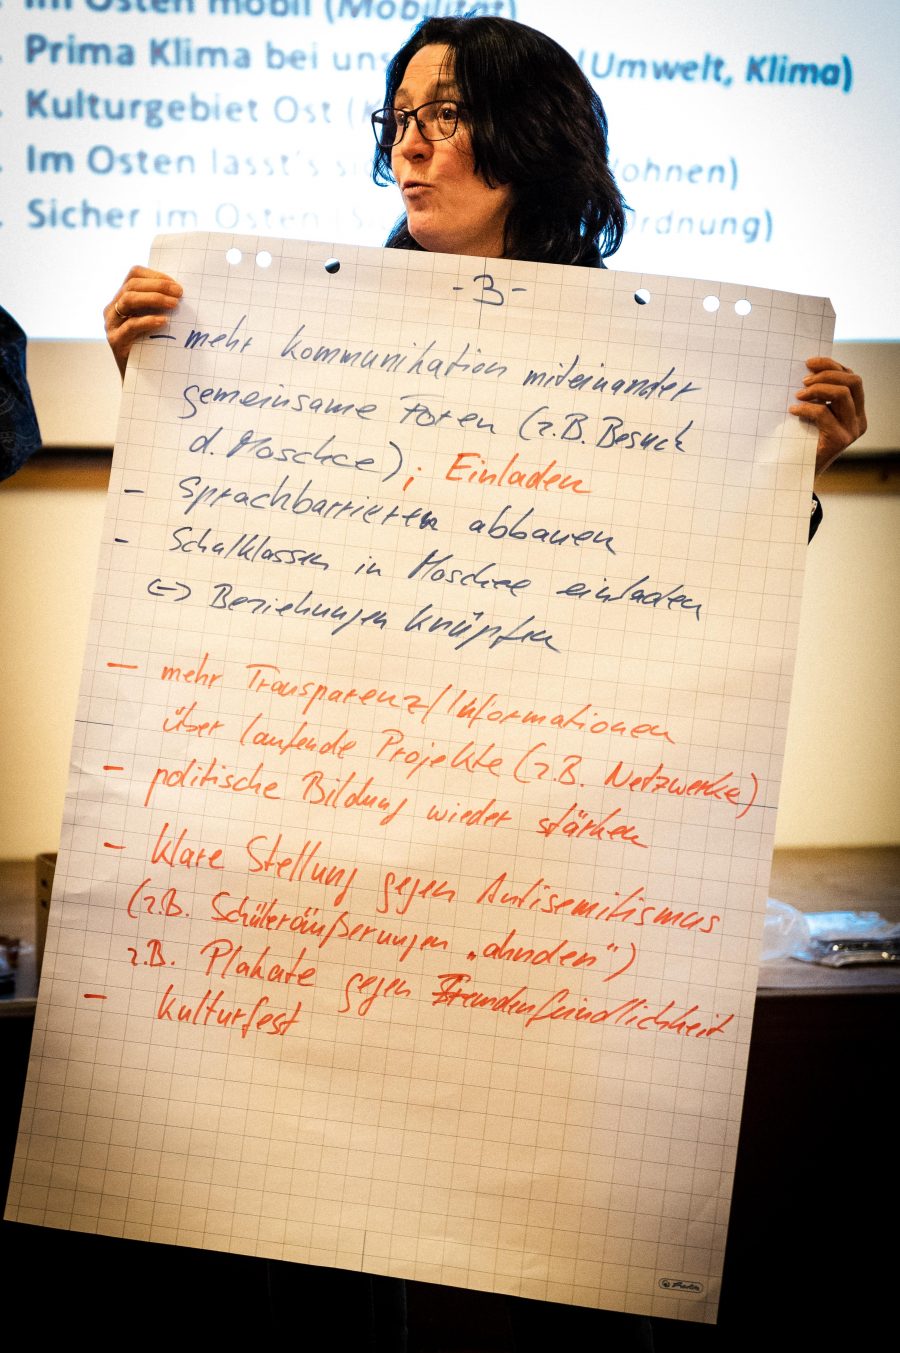 Im Osten mobil (Mobilität)
Prima Klima bei uns (Umwelt, Klima)
Kulturgebiet Ost (
Im Osten lasst's si ohnen)
Sicher im Osten (S Ordnung)
- 3 -
- mehr Kommunikation miteinander
gemeinsame Foren (z.B. Besuch
d. Moschee) ; Einladen
- Sprachbarrieren abbauen
- Schulklassen in Moschee einladen
<=> Beziehungen knüpfen
- mehr Transparenz/Informationen
über laufende Projekte (z.B. Netzwerke)
- politische Bildung wieder stärken
- klare Stellung gegen Antisemitismus
(z.B. Schüleräußerungen „ahnden")
z.B. Plakate gegen Fremdenfeindlichkeit
- Kulturfest